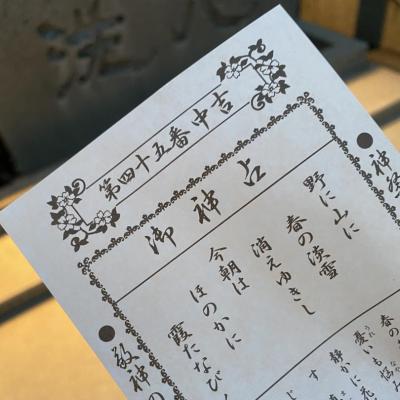 洗心
第四十五番 中吉
御神占
野に山に
春の淡雪
消えゆきし
今朝は
ほのかに
霞たなび
神
春の
憂いも悩
静かに花
す
敬神の